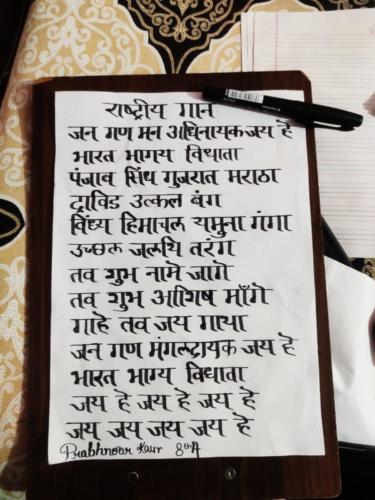 राष्ट्रीय गान
जन गण मन अधिनायक जय हे
भारत भागय विधाता
पंजाब सिंध गुजरात मराठा
द्राविड उत्कल बंग
विंध्य हिमाचल यमुना गंगा
उच्छल जलधि तरंग
तव शुभ नामे जागे
तव शुभ आशिष माँगे
गाहे तव जय गाथा
जन गण मंगलदायक जय हे
भारत भाग्य विधाता
जय हे जय हे जय हे
जय जय जय जय हे
Prabhnoor Kaur 8th A